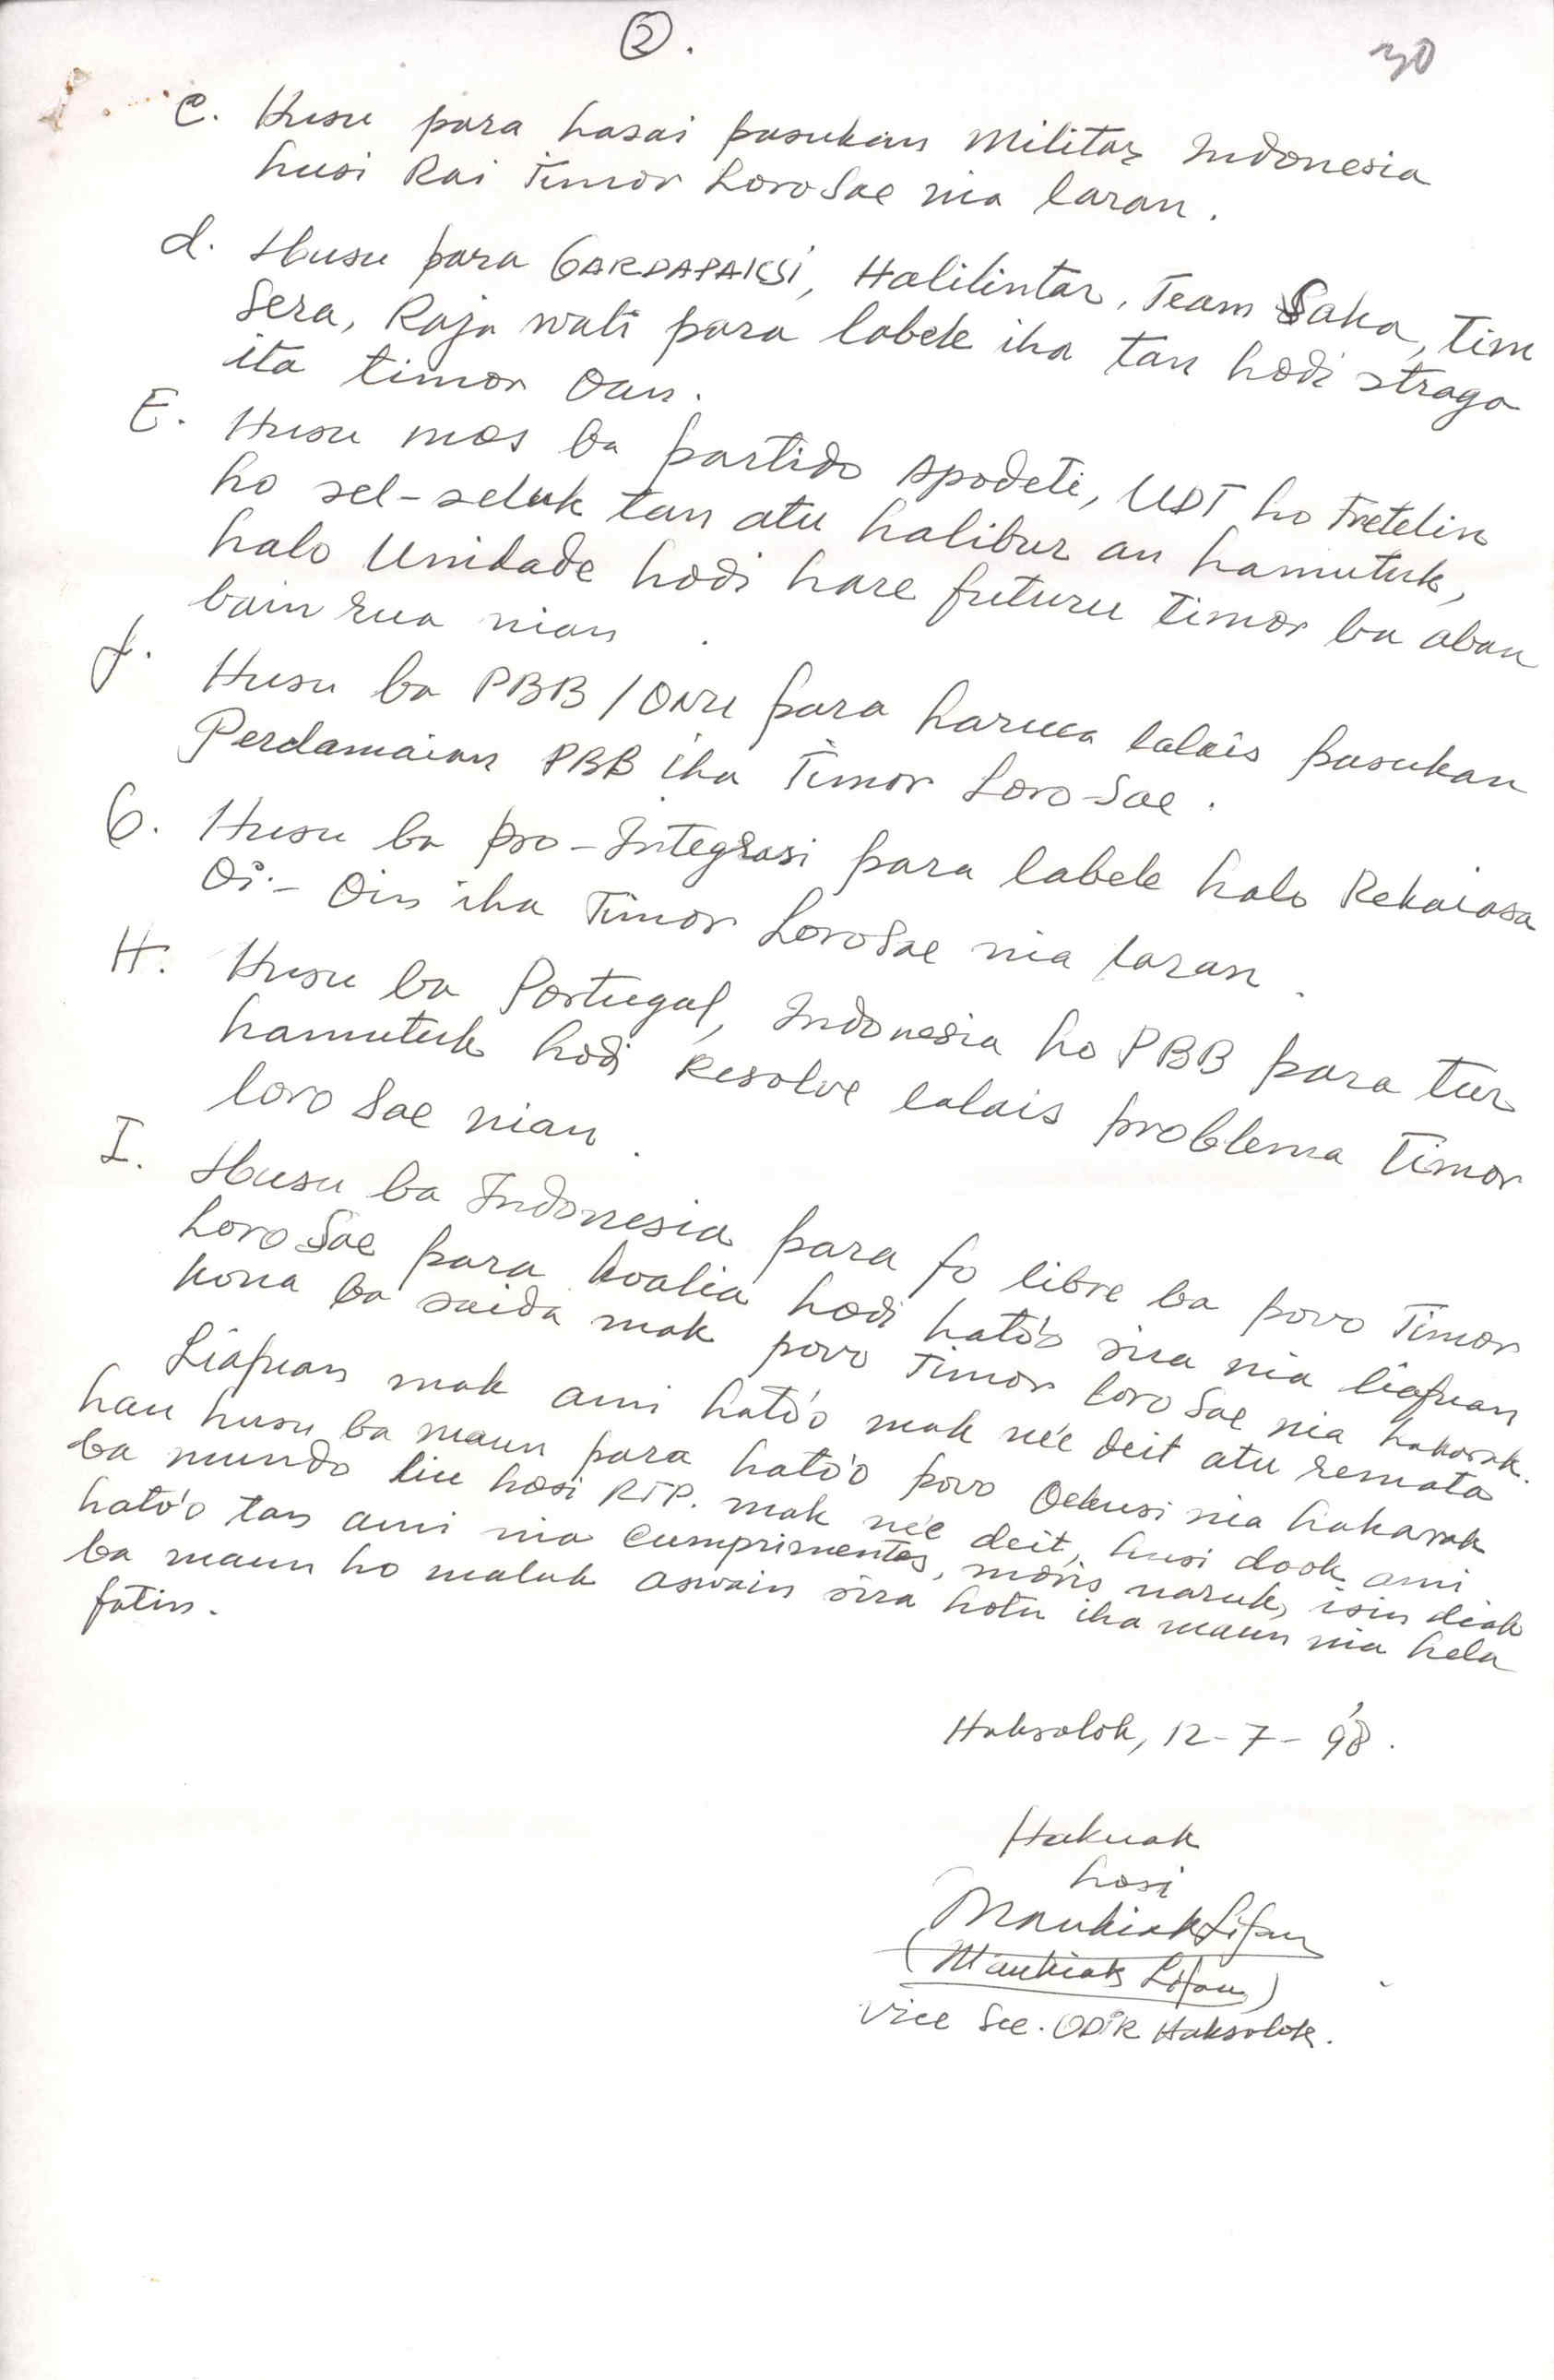 2.
30
C. Husu para hasai pasukan Militar Indonesia
husi Rai Timor LoroSae nia laran.
d. Husu para GARDAPAKSI, Halilintar, Team Saka, Tim
Sera, Raja wali para labele iha tan hodi straga
ita timor Oan.
E. Husu mos ba partido Apodeti, UDT ho Fretelin
ho sel-seluk tan atu halibur an hamutuk,
halo Unidade hodi hare futuru timor ba aban
bain rua nian.
f. Husu ba PBB/ONU para haruca lalais pasukan
Perdamaian PBB iha Timor Loro-Sae.
G. Husu ba pro-Integrasi para labele halo Rekaiasa
Oi-Oin iha Timor LoroSae nia laran.
H. Husu ba Portugal, Indonesia ho PBB para tur
hamutuk hodi Resolve lalais problema Timor
loro Sae nian.
I. Husu ba Indonesia para fo libre ba povo Timor
Loro Sae para koalia hodi hato'o sira nia liafuan
kona ba saida mak povo Timor loro Sae nia hakarak.
Liafuan mak ami hato'o mak ne'e deit atu remata
hau husu ba maun para hato'o povo Oekusi nia hakarak
ba mundo liu hosi RTP. mak ne'e deit, husi dook ami
hato'o tan ami nia cumprimentos, moris naruk, isin diak
ba maun ho maluk aswain sira hotu iha maun nia hela
fatin.
Haksolok, 12-7-'98.
Hakuak
hosi
Maukiak Lifau
(Maukiak Lifau)
Vice Sec. ODIR Haksolok.